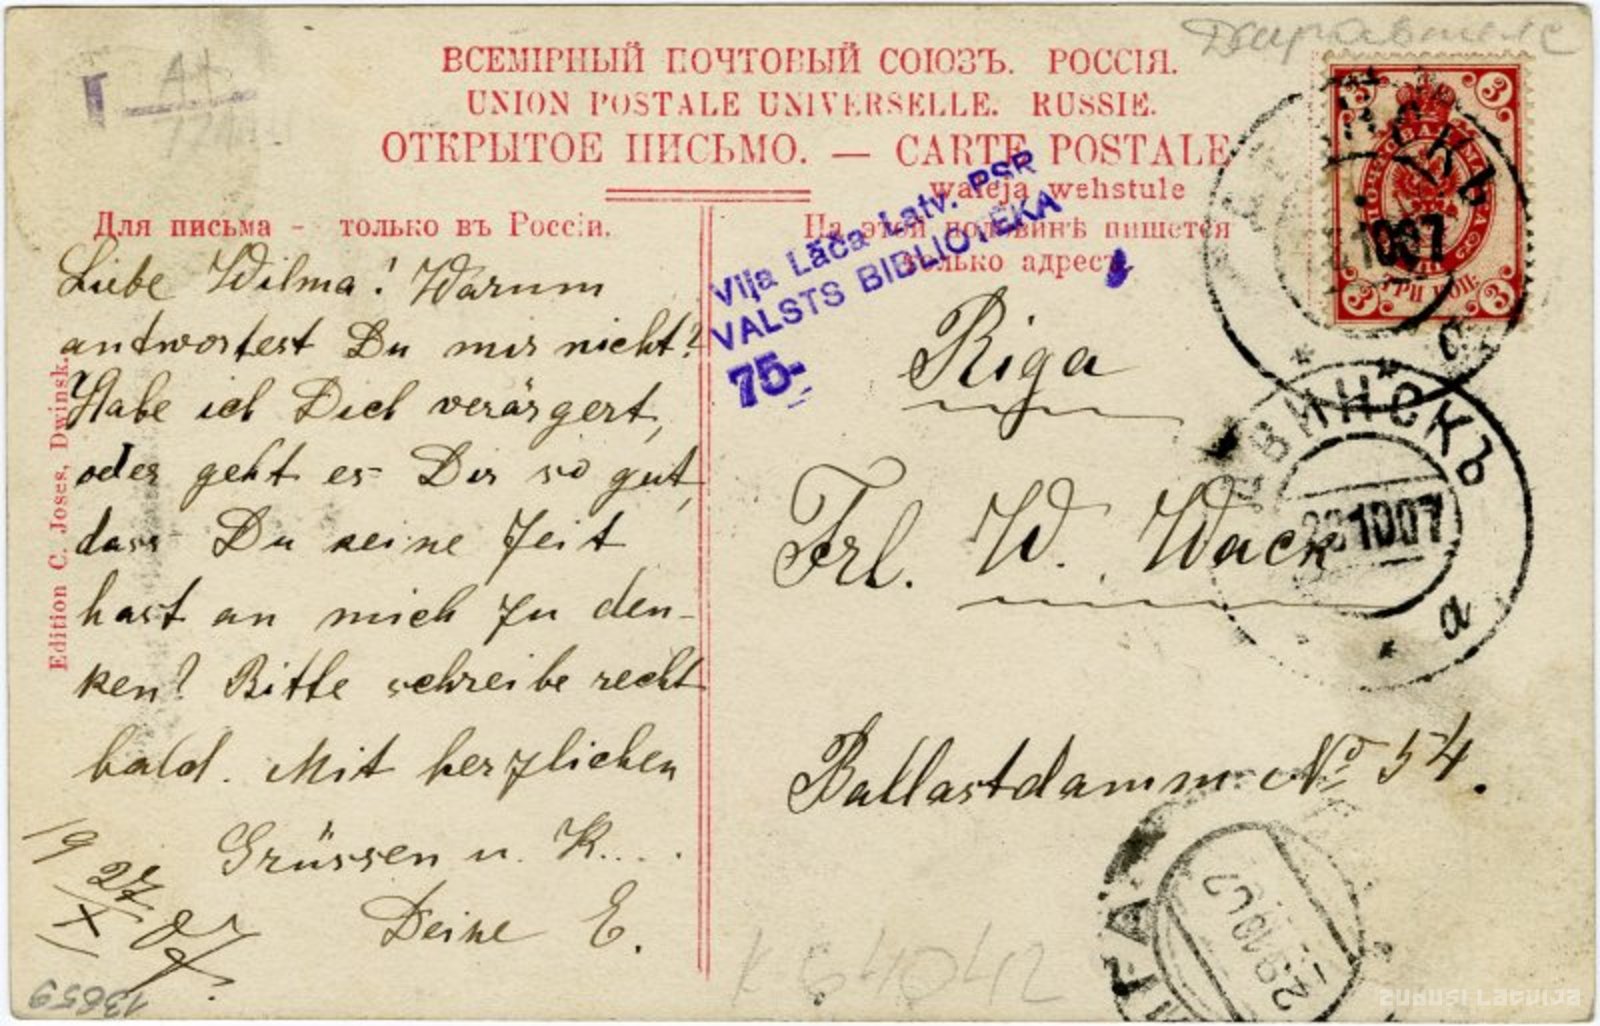 Даугавпилс
ВСЕМІРНЫЙ ПОЧТОВЫЙ СОЮЗЪ. РОССІЯ.
UNION POSTALE UNIVERSELLE. RUSSIE.
ОТКРЫТОЕ ПИСЬМО. — CARTE POSTALE
waleja wehstule
Для письма - только въ Россіи.
На этой половинѣ пишется
только адресъ
Vija Lāča Latv. PSR
VALSTS BIBLIOTEKA
75-
3 3
ТРИ КОП.
3 3
ДВИНСКЪ
1007
а
ДВИНСКЪ
281007
а
Liebe Wilma! Warum
antwortest Du mir nicht?
Habe ich Dich verärgert,
oder geht es Dir so gut,
dass Du keine Zeit
hast an mich zu den-
ken? Bitte schreibe recht
bald. Mit herzlichen
Grüssen u. K....
Deine E.
19 27/X 07.
Edition C. Joses, Dwinsk.
Riga
Frl. W. Wack
Ballastdamm No 54.
РИГА
K 64042
13659
zudusi Latvija